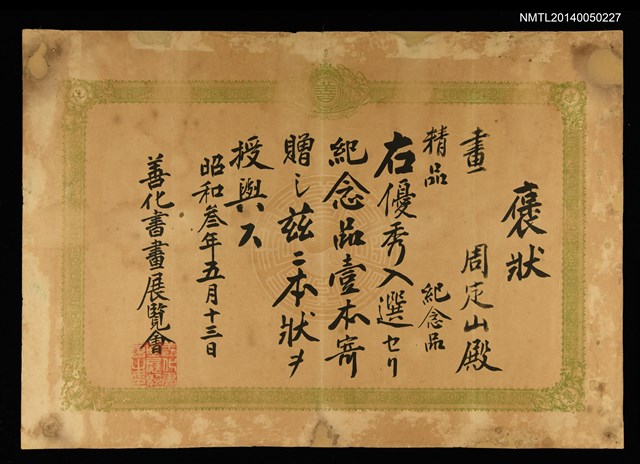 NMTL20140050227
褒狀
畫 周定山殿
精品 紀念品
右優秀入選セリ
紀念品壹本寄
贈シ茲ニ本狀ヲ
授與ス
昭和叁年五月十三日
善化書畫展覽會